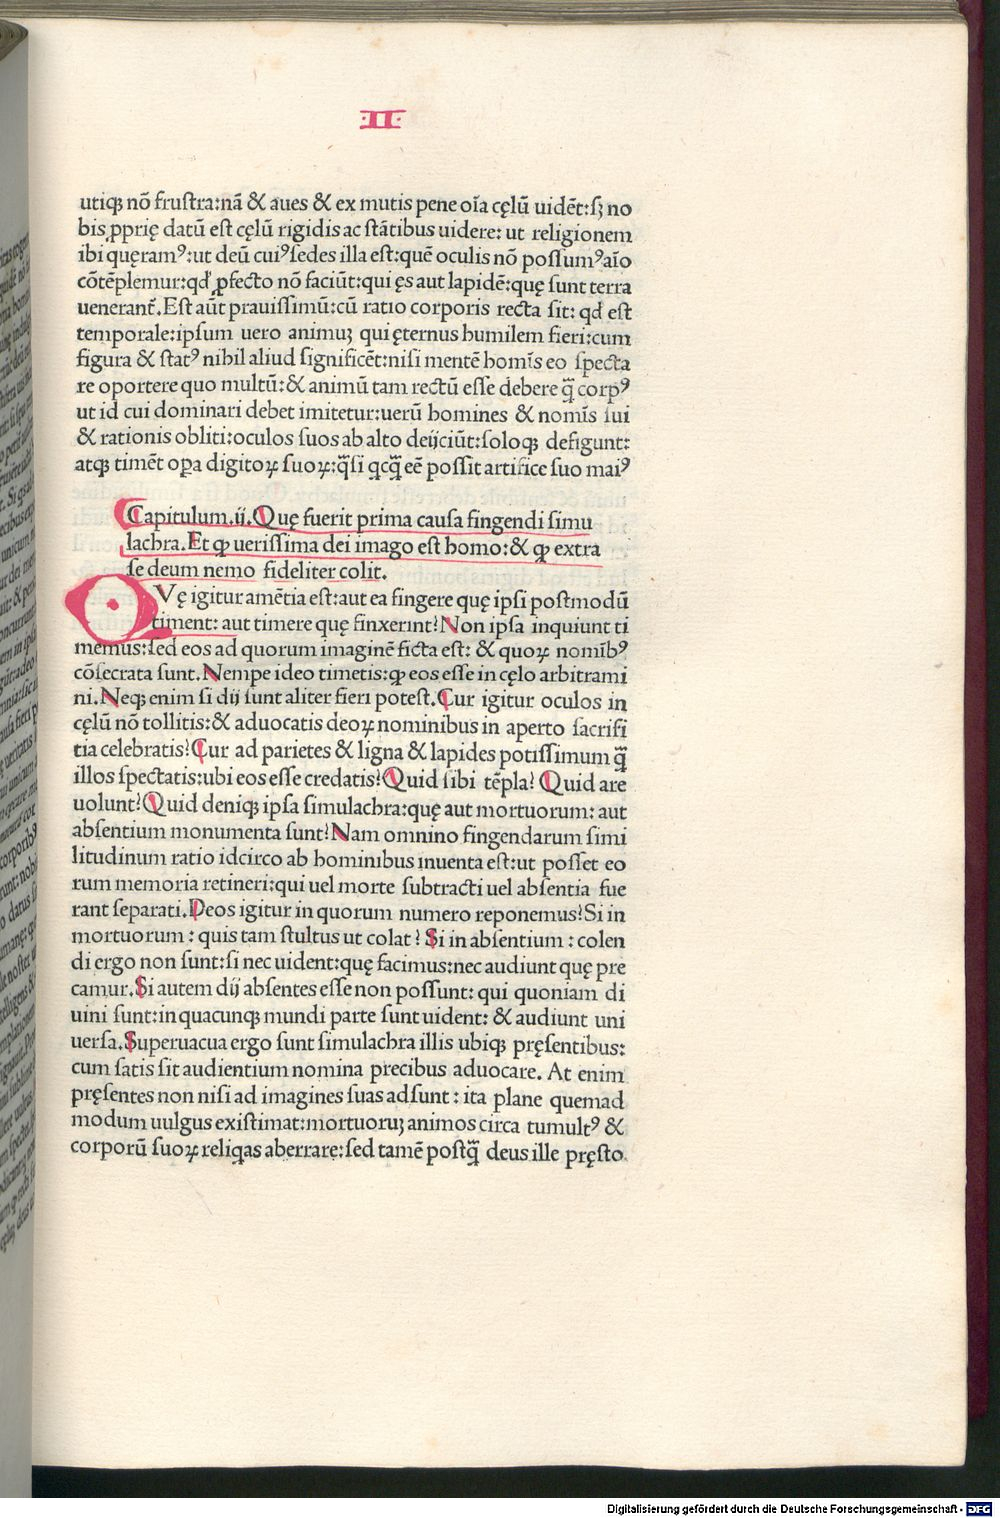 ·II·
utiqꝫ nõ frustra:nã & aues & ex mutis pene oĩa cęlũ uidẽt:sꝫ no
bis ꝓprię datũ est cęlũ rigidis ac stãtibus uidere: ut religionem
ibi quęramꝰ:ut deũ cuiꝰ sedes illa est:quẽ oculis nõ possumꝰ aĩo
cõtẽplemur:qđ ꝓfecto nõ faciũt:qui ęs aut lapidẽ:quę sunt terra
uenerant̃. Est aũt prauissimũ:cũ ratio corporis recta sit: qđ est
temporale:ipsum uero animuꝫ qui ęternus humilem fieri:cum
figura & statꝰ nihil aliud significẽt:nisi mentẽ homĩs eo specta
re oportere quo multũ:& animũ tam rectũ esse debere q̃ꝫ corpꝰ
ut id cui dominari debet imitetur:uerũ homines & nomĩs sui
& rationis obliti:oculos suos ab alto deijciũt:soloqꝫ defigunt:
atqꝫ timẽt oꝑa digitoꝝ suoꝝ:q̃si qcq̃ꝫ eẽ possit artifice suo maiꝰ
Capitulum.ij. Quę fuerit prima causa fingendi simu
lachra. Et ꝙ uerissima dei imago est homo:& ꝙ extra
se deum nemo fideliter colit.
QVę igitur amẽtia est:aut ea fingere quę ipsi postmodũ
timent: aut timere quę finxerint? Non ipsa inquiunt ti
memus:sed eos ad quorum imaginẽ ficta est: & quoꝝ nomĩbꝰ
cõsecrata sunt. Nempe ideo timetis:ꝙ eos esse in cęlo arbitrami
ni. Neqꝫ enim si dij sunt aliter fieri potest. Cur igitur oculos in
cęlũ nõ tollitis:& aduocatis deoꝝ nominibus in aperto sacrifi
tia celebratis? Cur ad parietes & ligna & lapides potissimum q̃ꝫ
illos spectatis:ubi eos esse credatis? Quid sibi tẽpla? Quid are
uolunt? Quid deniqꝫ ipsa simulachra:quę aut mortuorum: aut
absentium monumenta sunt? Nam omnino fingendarum simi
litudinum ratio idcirco ab hominibus inuenta est:ut posset eo
rum memoria retineri:qui uel morte subtracti uel absentia fue
rant separati. Deos igitur in quorum numero reponemus? Si in
mortuorum : quis tam stultus ut colat? Si in absentium : colen
di ergo non sunt:si nec uident:quę facimus:nec audiunt quę pre
camur. Si autem dij absentes esse non possunt: qui quoniam di
uini sunt:in quacunqꝫ mundi parte sunt uident: & audiunt uni
uersa. Superuacua ergo sunt simulachra illis ubiqꝫ pręsentibus:
cum satis sit audientium nomina precibus aduocare. At enim
pręsentes non nisi ad imagines suas adsunt : ita plane quemad
modum uulgus existimat:mortuoruꝫ animos circa tumultꝰ &
corporũ suoꝝ reliqas aberrare:sed tamẽ postq̃ꝫ deus ille pręsto
Digitalisierung gefördert durch die Deutsche Forschungsgemeinschaft - DFG